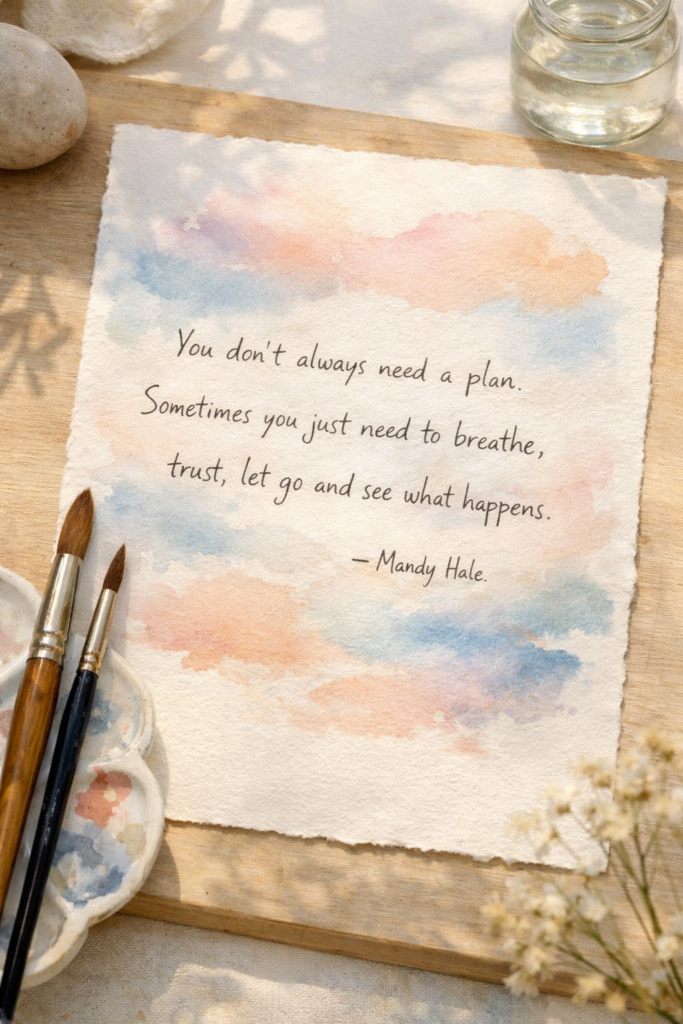 You don't always need a plan.
Sometimes you just need to breathe,
trust, let go and see what happens.
— Mandy Hale.